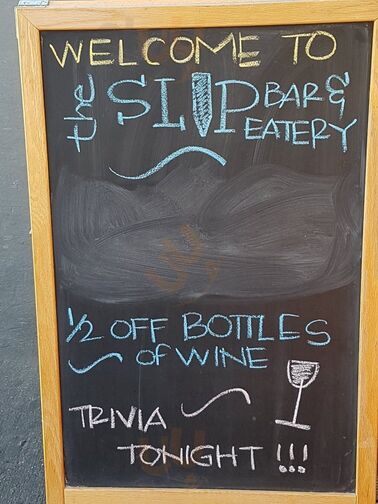 WELCOME TO
the SLIP BAR &
EATERY
1/2 OFF BOTTLES
OF WINE
TRIVIA
TONIGHT !!!